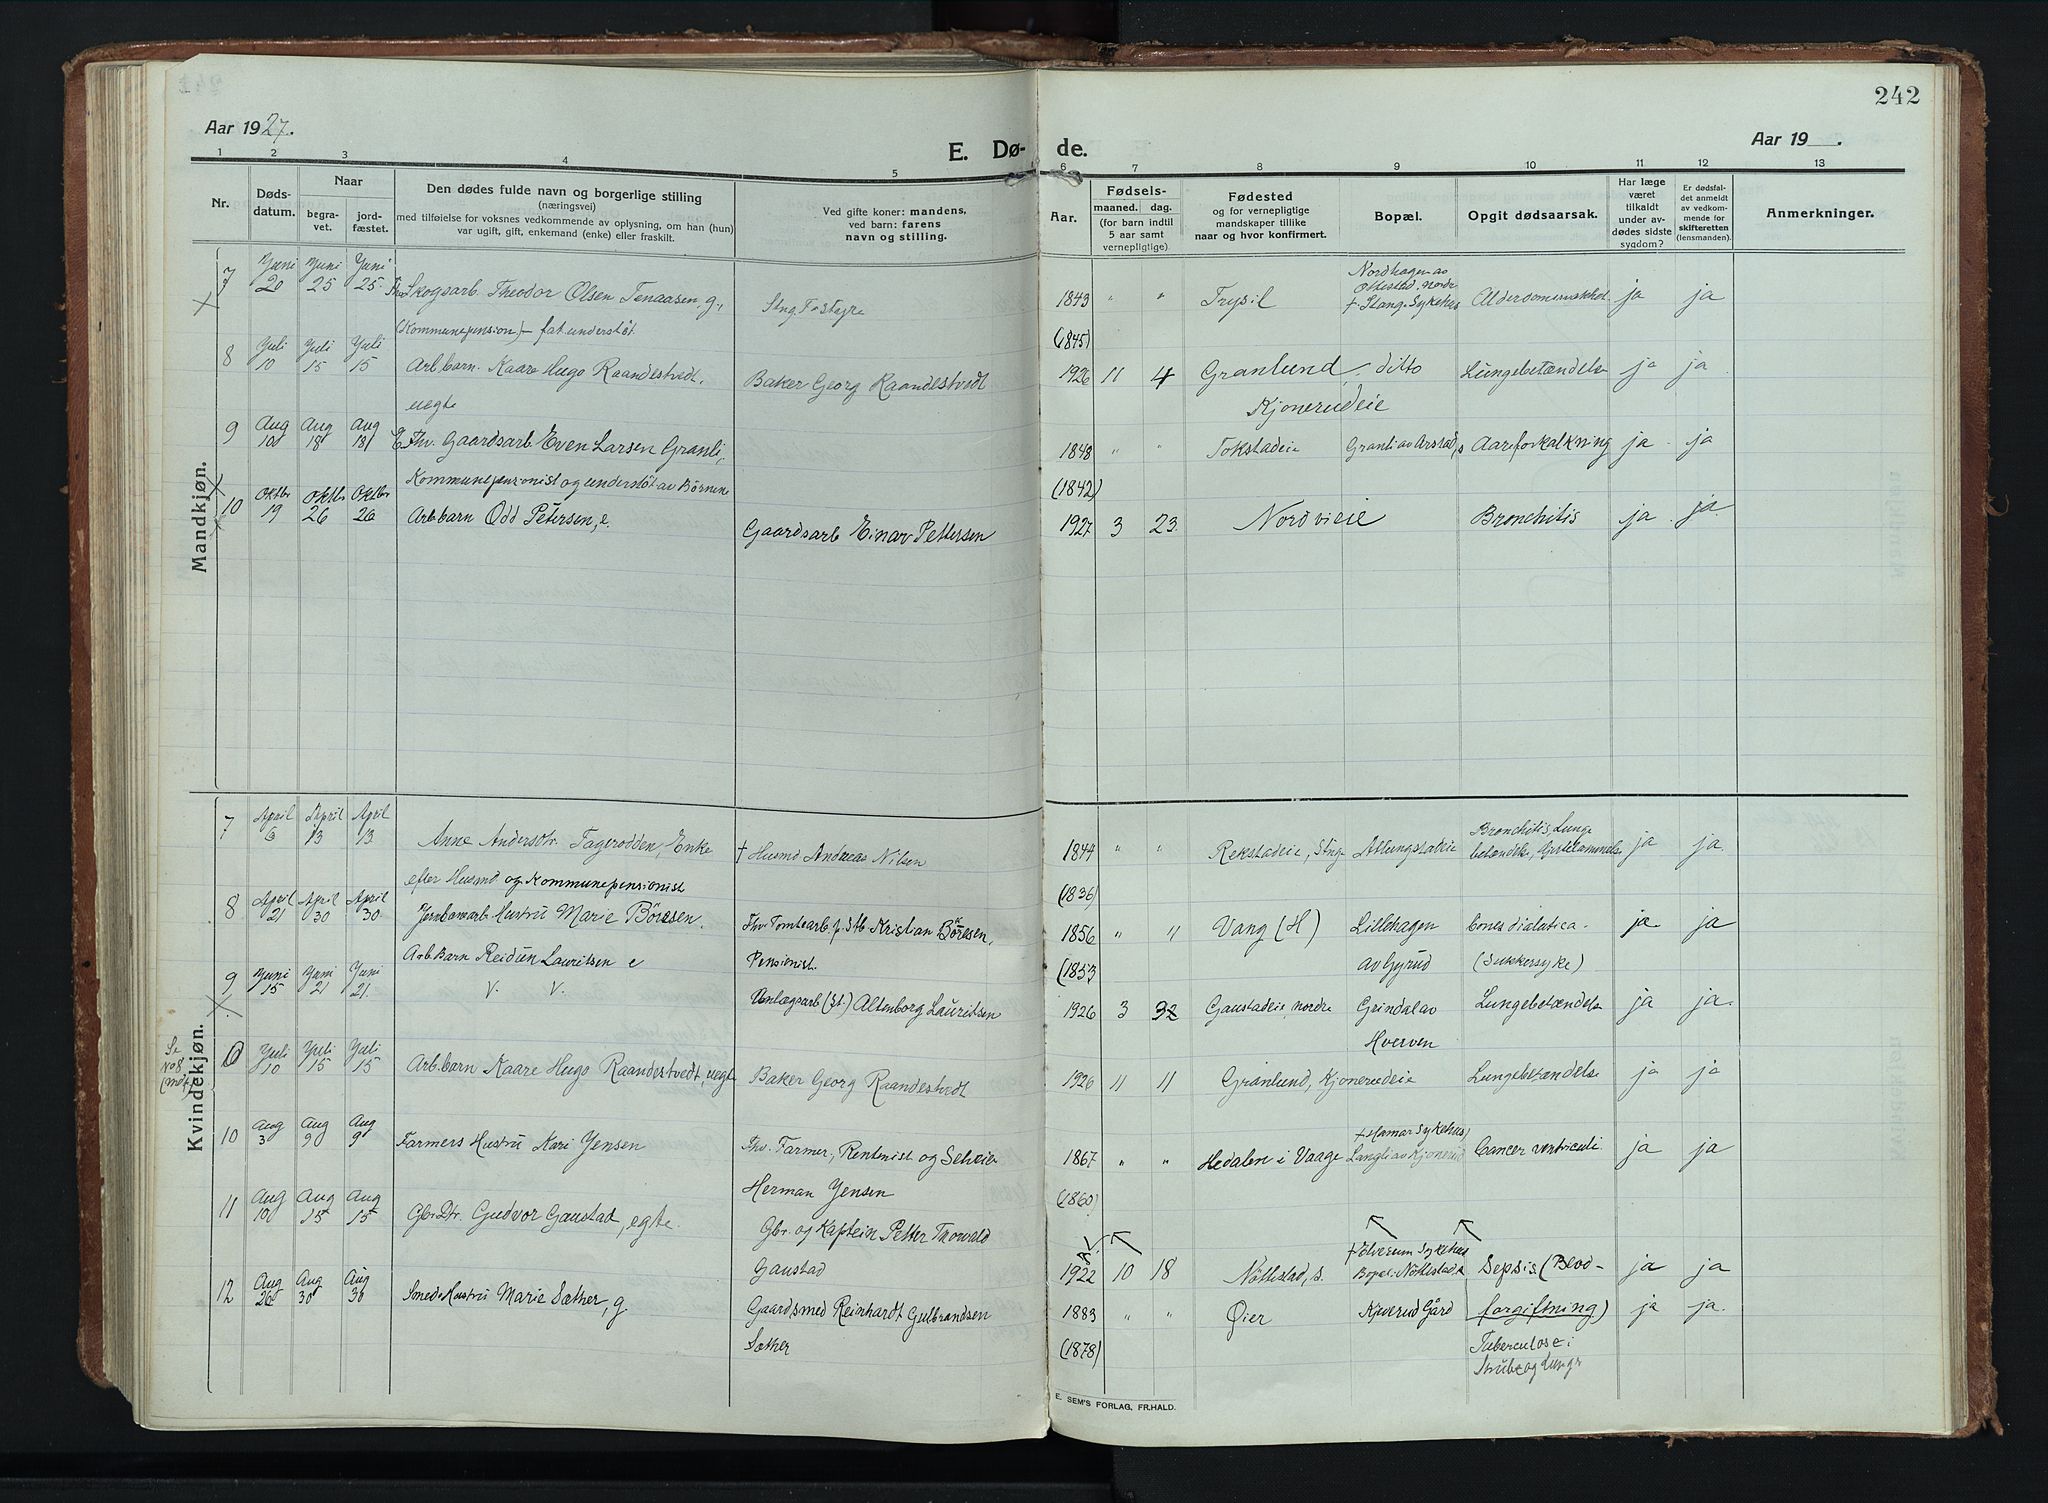 242
Aar 1927.
E. Dø-
de.
Aar 19 .
1 2 3 4 5 6 7 8 9 10 11 12 13
Nr.
Døds-
datum.
Naar
begra-
vet.
jord-
fæstet.
Den dødes fulde navn og borgerlige stilling
(næringsvei)
med tilføielse for voksnes vedkommende av oplysning, om han (hun)
var ugift, gift, enkemand (enke) eller fraskilt.
Ved gifte koner: mandens,
ved barn: farens
navn og stilling.
Aar.
Fødsels-
maaned. dag.
(for barn indtil
5 aar samt
vernepligtige).
Fødested
og for vernepligtige
mandskaper tillike
naar og hvor konfirmert.
Bopæl.
Opgit dødsaarsak.
Har læge
været
tilkaldt
under av-
dødes sidste
sygdom?
Er dødsfal-
det anmeldt
av vedkom-
mende for
skifteretten
(lensmanden).
Anmerkninger.
Mandkjøn.
7 Juni 20 Juni 25 Juni 25 Skogsarb. Theodor Olsen Tenaasen, g.,
(Kommunepension) - fat. understöt
1843 " " Trysil
(1845)
Nordhagen av
Ottestad, nordre
+ Stange Sykehus
ja ja
8 Juli 10 Juli 15 Juli 15 Arb. barn. Kaare Hugo Raandestvedt,
uegte
Baker Georg Raandestvedt
1926 11 4 Granlund, ditto
Kjonerudeie
Lungebetændelse ja ja
9 Aug 10 Aug 18 Aug 18 Fhv. Gaardsarb. Even Larsen Granli,
Kommunepensionist og understöt av Børnene
1848 " " Tokstadeie
(1842)
Granli av Arstad, s Aareforkalkning ja ja
10 Oktbr 19 Oktbr 26 Oktbr 26 Arb. barn Odd Petersen, e.
Gaardsarb Einar Pettersen
1927 3 23. Nordvieie Bronchitis ja ja
Kvindekjøn.
7 April 6 April 13 April 13
Anne Andersdtr. Tagerødden, Enke
efter Husmd og Kommunepensionist
+ Husmd Andreas Nilsen
1844 " " Rekstadeie, Stnge
(1836)
Bronchitis, Lunge
betændelse,
ja ja
8 April 21 April 30 April 30
Hustru Marie Börresen.
Fhv. Tomtearb. p. Stb Kristian Börresen,
Pensionist.
1856 " " Vang (H)
(1853
Lillehagen
av Gyrud
(Sukkersyke)
ja ja
9 Juni 15 Juni 21 Juni 21.
Arb. Barn Reidun Lauritsen e
V. V.
Anlægsarb (St.) Altenborg Lauritsen
1926 3 Gaustadeie, nordre
Grindal av
Hverven
Lungebetændelse ja ja
Se
No 8
Juli 10 Juli 15 Juli 15
Arb. barn Kaare Hugo Raandestvedt, uegte
Baker Georg Raandestvedt
1926 11 11 Granlund, Kjonerudeie Lungebetændelse ja ja
10 Aug 3 Aug 9 Aug 9
Farmers Hustru Kari Jensen
Fhv. Farmer, Rentenist og Selveier
Herman Jensen
1867 " " Hedalen i Vaage
(1860)
+ Hamar Sykehus
Langli av Kjonerud
Cancer ventriculi. ja ja
11 Aug 10 Aug 15 Aug 15
Gbr. Dtr. Gudvor Gaustad, egte.
Gbr. og Kaptein Petter Thorvald
Gaustad
1922 10 18 Nöttestad, s.
+ Tolvsrum Sykehus
Bopæl: Nöttestad, s
Sepsis (Blod-
forgiftning)
ja ja
12 Aug 26 Aug 30 Aug 30
Smeds Hustru Marie Sæther, g.
Gaardsmed Reinhardt Gulbrandsen
Sæther
1883 " " Øier
(1878)
Kjonerud Gård
Tuberculose i
Strube og Lunge
ja ja
E. SEM'S FORLAG, FR.HALD.